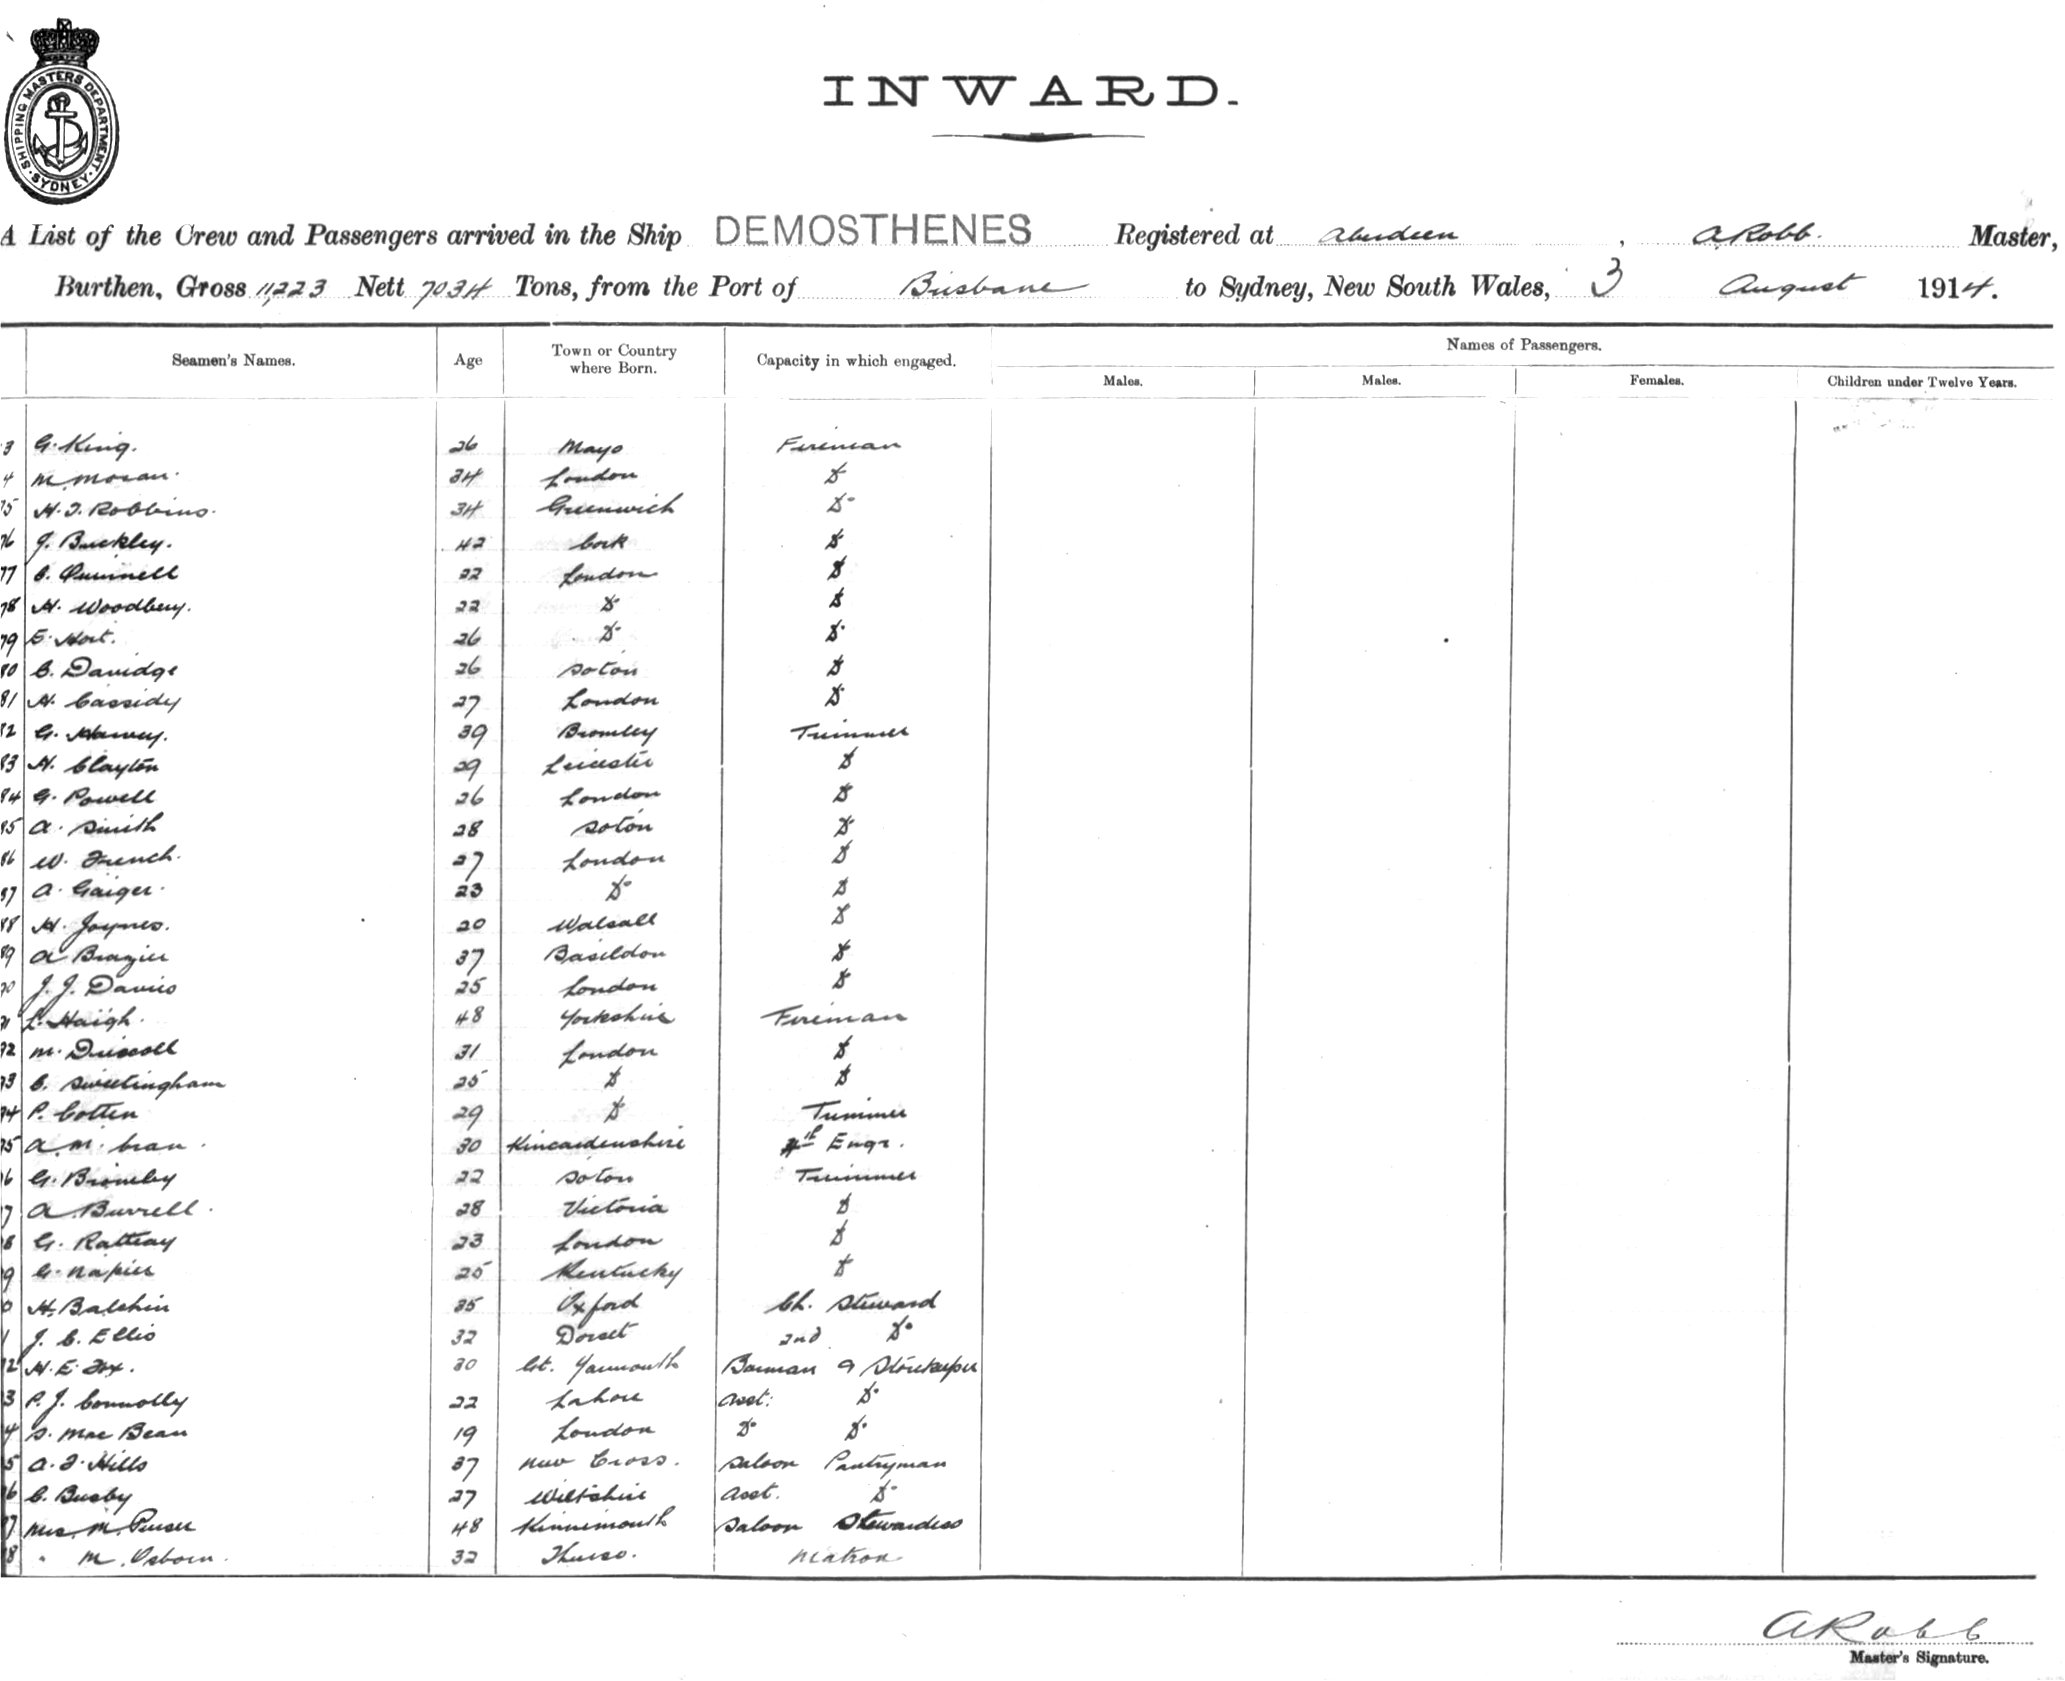 SHIPPING MASTERS DEPARTMENT · SYDNEY ·
INWARD.
A List of the Crew and Passengers arrived in the Ship DEMOSTHENES Registered at Aberdeen, A Robb. Master,
Burthen, Gross 11,223 Nett 7034 Tons, from the Port of Brisbane to Sydney, New South Wales, 3 August 1914.
Seamen's Names. Age Town or Country where Born. Capacity in which engaged. Names of Passengers.
Males. Males. Females. Children under Twelve Years.
3 G. King. 26 Mayo Fireman
4 M. Moran. 34 London Do
75 H. J. Robbins. 34 Greenwich Do
76 J. Buckley. 42 Cork Do
77 C. Quinnell 22 London Do
78 H. Woodbery. 22 Do Do
79 E. Hort. 26 Do Do
80 C. Davidge 26 Soton Do
81 H. Cassidy 27 London Do
82 G. Harvey. 39 Bromley Trimmer
83 H. Clayton 29 Leicester Do
84 G. Powell 26 London Do
85 A. Smith 28 Soton Do
86 W. French. 27 London Do
87 A. Gaiger. 23 Do Do
88 H. Joynes. 20 Walsall Do
89 A Brazier 37 Basildon Do
90 J. J. Davies 25 London Do
91 L. Haigh. 48 Yorkshire Fireman
92 M. Driscoll 31 London Do
93 C. Sweetingham 25 Do Do
94 P. Cotten 29 Do Trimmer
95 A. M. Cran. 30 Kincardenshire 4th Engr.
6 G. Bromley 22 Soton Trimmer
7 A. Burrell. 28 Victoria Do
8 G. Rattray 23 London Do
9 G. Napier 25 Kentucky Do
0 H. Balchin 35 Oxford Ch. Steward
1 J. C. Ellis 32 Dorset 2nd Do
2 H. E. Fox. 30 Gt. Yarmouth Barman & Storekeeper
3 P. J. Connolly 22 Lahore Asst: Do
4 S. Mac Bean 19 London Do Do
5 A. F. Hills 37 New Cross. Saloon Pantryman
6 C. Busby 27 Wiltshire Asst. Do
7 Mrs. M. Purser 48 Kinnimouth Saloon Stewardess
8 " M. Osborn. 32 Thurso. Matron
A Robb
Master's Signature.